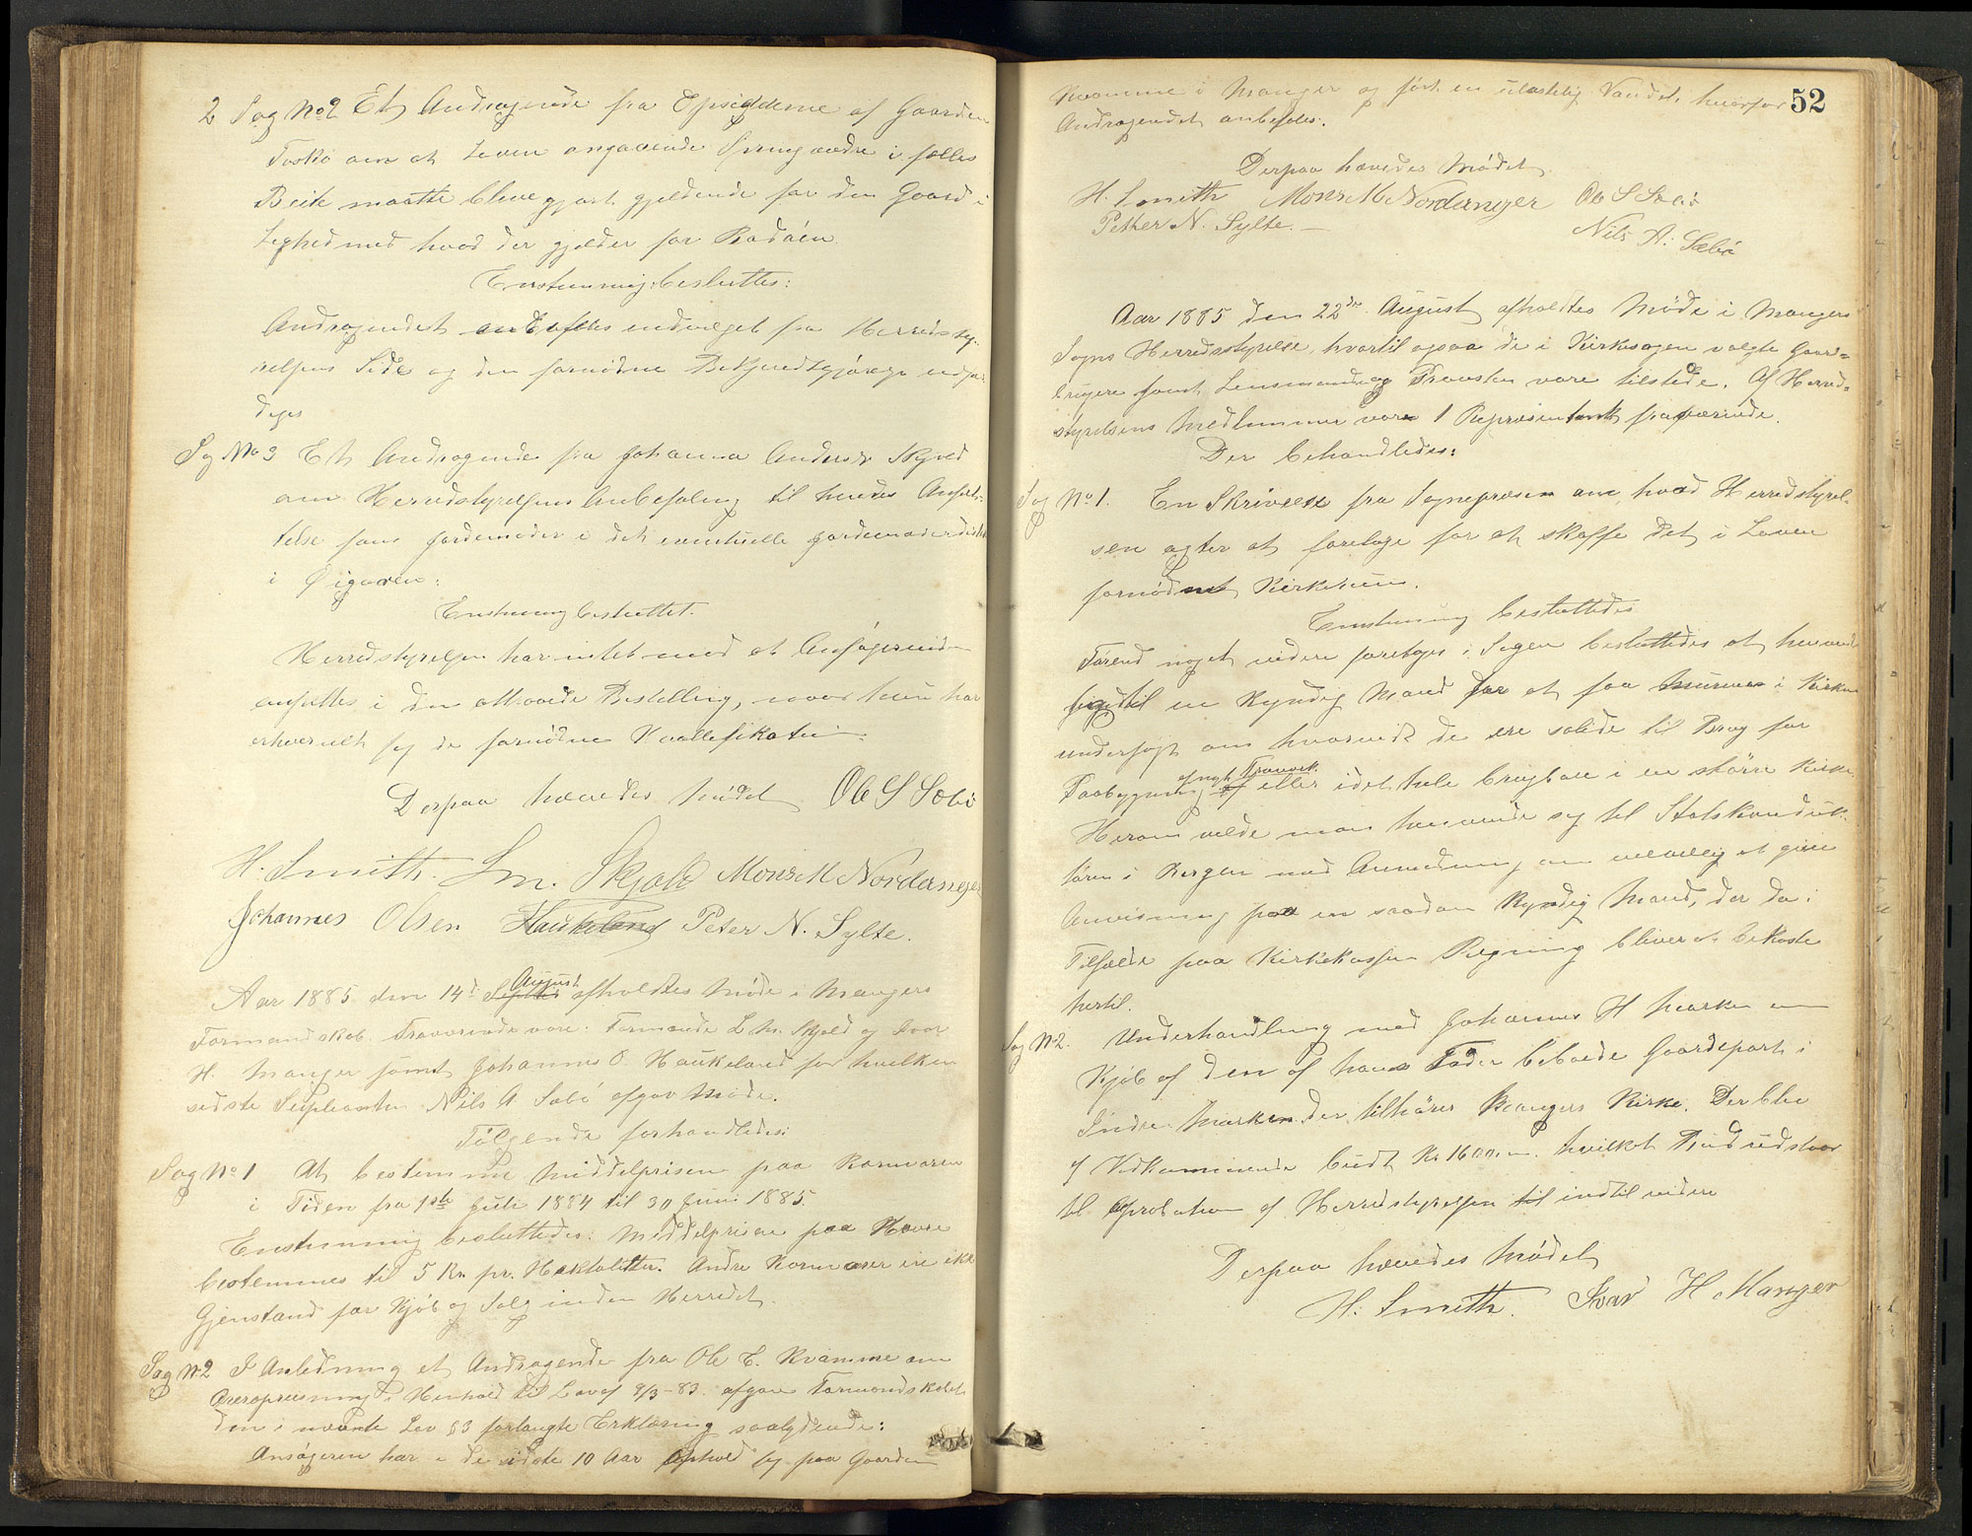 2 Sag No 2 Et Andragende fra Opsidderne af Gaarden
Toskə om at Loven angaaende Springvædre i fælles
Beite maatte blive gjort gjeldende for den Gaard i
Lighed med hvad der gjelder for Radöen
Enstemmig besluttes:
Andragendet anbefales endvidere fra Herredsty-
relsens Side og den fornødne Bekjendtgjørelse udfær-
diges
Sag No 3 Et Andragende fra Johanna Andersd. Skjold
om Herredstyrelsens Anbefaling til hendes Ansæt-
telse som Jordemoder i det eventuelle Jordemoderdistrikt
i Øigaren:
Enstemmig besluttet.
Herredstyrelsen har intet imod at Ansøgerinden
ansættes i den attraaede Bestilling, naar hun har
erhvervet sig de fornødne Kvallifikationer.
Derpaa hævedes Mödet Ole S Sæbö
H. Smith. L m. Skjold Mons M Nordanger
Johannes Olsen Haukeland Peter N. Sylte.
August
Aar 1885 den 14de Septbr afholdtes Möde i Mangers
Formandskab. Fraværende vare: Formænde L M. Skjold og Ivar
H. Manger samt Johannes O Haukeland for hvilken
sidste Supleanten Nils A Sæbö afgav Möde.
Følgende forhandledes:
Sag No 1 At bestemme Middelprisen paa Kornvarer
i Tiden fra 1ste Juli 1884 til 30 Juni 1885.
Enstemmig besluttedes: Middelprisen paa Havre
bestemmes til 5 Kr. pr. Hektoliter. Andre Kornvarer ere ikke
Gjenstand for Kjöb og Salg inden Herredet.
Sag No 2 I Anledning et Andragende fra Ole E. Kvamme om
Oreropreisning i Henhold til Lov af 9/3-83. afgav Formandskabet
den i nævnte Lov §3 forlangte Erklæring saalydende:
Ansögeren har i de sidste 10 Aar opholdt sig paa Gaarden
52
Kvamme i Manger og ført en ulastelig Vandel, hvorfor
Andragendet anbefales.
Derpaa hævedes Mödet
H. Smith Mons M Nordanger Ole S Sæbö
Pether N. Sylte. Nils A. Sæbö
Aar 1885 den 22de August afholdtes Möde i Mangers
Sogns Herredsstyrelse, hvortil ogsaa de i Kirkesagen valgte Gaard-
brugere samt Lensmand og Provsten vare tilstede. Af Herred-
styrelsens Medlemmer vare 1 Repræsentant fraværende.
Der behandledes:
Sag No 1. En Skrivelse fra Sognepræsten om, hvad Herredstyrel-
sen agter at foretage for at skaffe det i Loven
fornødne Kirkerum.
Enstemmig besluttedes
Førend noget videre foretages i Sagen besluttedes at henvende
sig til en kyndig Mand for at faa Murene i Kirken
undersøgt om hvorvidt de ere solide til Brug for
af nyt Træværk
Paabygning af eller i det hele brugbare i en större Kirke.
Herom vilde man henvende sig til Statskonduk-
tøren i Bergen med Anmodning om velvillig at give
Anvisning paa en saadan kyndig Mand, der da i
Tilfælde paa Kirkekassens Regning bliver at bekoste
hertil.
Sag No 2. Underhandling med Johannes H Marken om
Kjöb af den af hans Fader beboede Gaardepart i
Indre Marken der tilhörer Mangers Kirke. Der blev
af Vedkommende budt Kr 1600, hvilket Bud udstaar
til Aprobation af Herredstyrelsen til indtil videre
Derpaa hævedes Mödet
H. Smith. Ivar H Manger